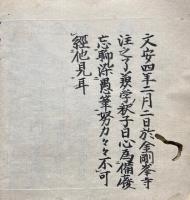 文安四年二月二日於金剛峯寺
注之了羨学秋子日心為備廃
忘聊染愚筆努力々々不可
経他見耳